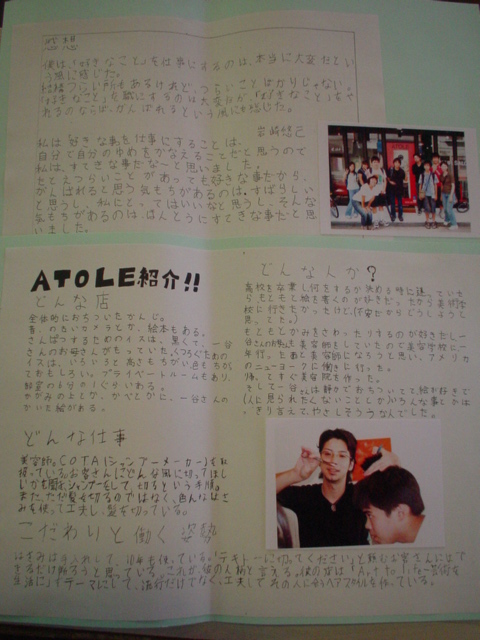 感想
僕は「好きなこと」を仕事にするのは、本当に大変だとい
う風に感じた。
結構つらい所もあるけれど、つらいことばかりじゃない。
「好きなこと」を職にするのは大変だが、「好きなこと」をや
れるのならば、がんばれるという風にも感じた。
岩崎悠己
私は「好きな事」を仕事にすることは、
自分で自分のゆめをかなえることだと思うので
私は、すてきな事だな〜と思いました。
たとえつらいことがあっても好きな事だから、
がんばれると思う気もちがあるのは、すばらしい
と思うし、私にとってはいいなと思うし、そんな
気もちがあるのは、ほんとうにすてきな事だと思
いました。
ATOLE紹介!!
どんな店
全体的におちついたかんじ。
昔の古いカメラとか、絵本もある。
さんぱつするためのイスは、黒くて、一谷
さんのお母さんがもっていた。くつろぐための
イスは、いろいろと高さもちがい、色もちがっ
ておもしろい。プライベートルームもあり、
かがみのとことか、かべとかに、一谷さんの
かいた絵がある。
どんな人か?
高校を卒業し何をするか決める時に迷っていた
からもともと絵を書くのが好きだったから美術学
校に行きたかったけど、(不安だからどうしようと
思ってた。)
もともとかみをさわったりするのが好きだし一
谷さんのお母さんも美容師をしていたので美容学校に一
年行った後に美容師になろうと思い、アメリカ
のニューヨークに働きに行った。
帰ってすぐ美容院を作った。
そして一谷さんは静かでおちついてて絵が好きで
どんな仕事
美容師。COTA(シャンプーメーカー)を取
扱っている。お客さんにどんな風に切ってほし
いかを聞き、シャンプーをして、切るという手順。
また、ただ髪を切るのではなく、色んなはさ
みを使って工夫し、髪を切っている。
こだわりと働く姿勢
はさみは手入れして、10年も使っている。「テキトーに切ってください」と頼むお客さんには「で
きるだけ断ろうと思っている。これが、彼の人柄と言える。